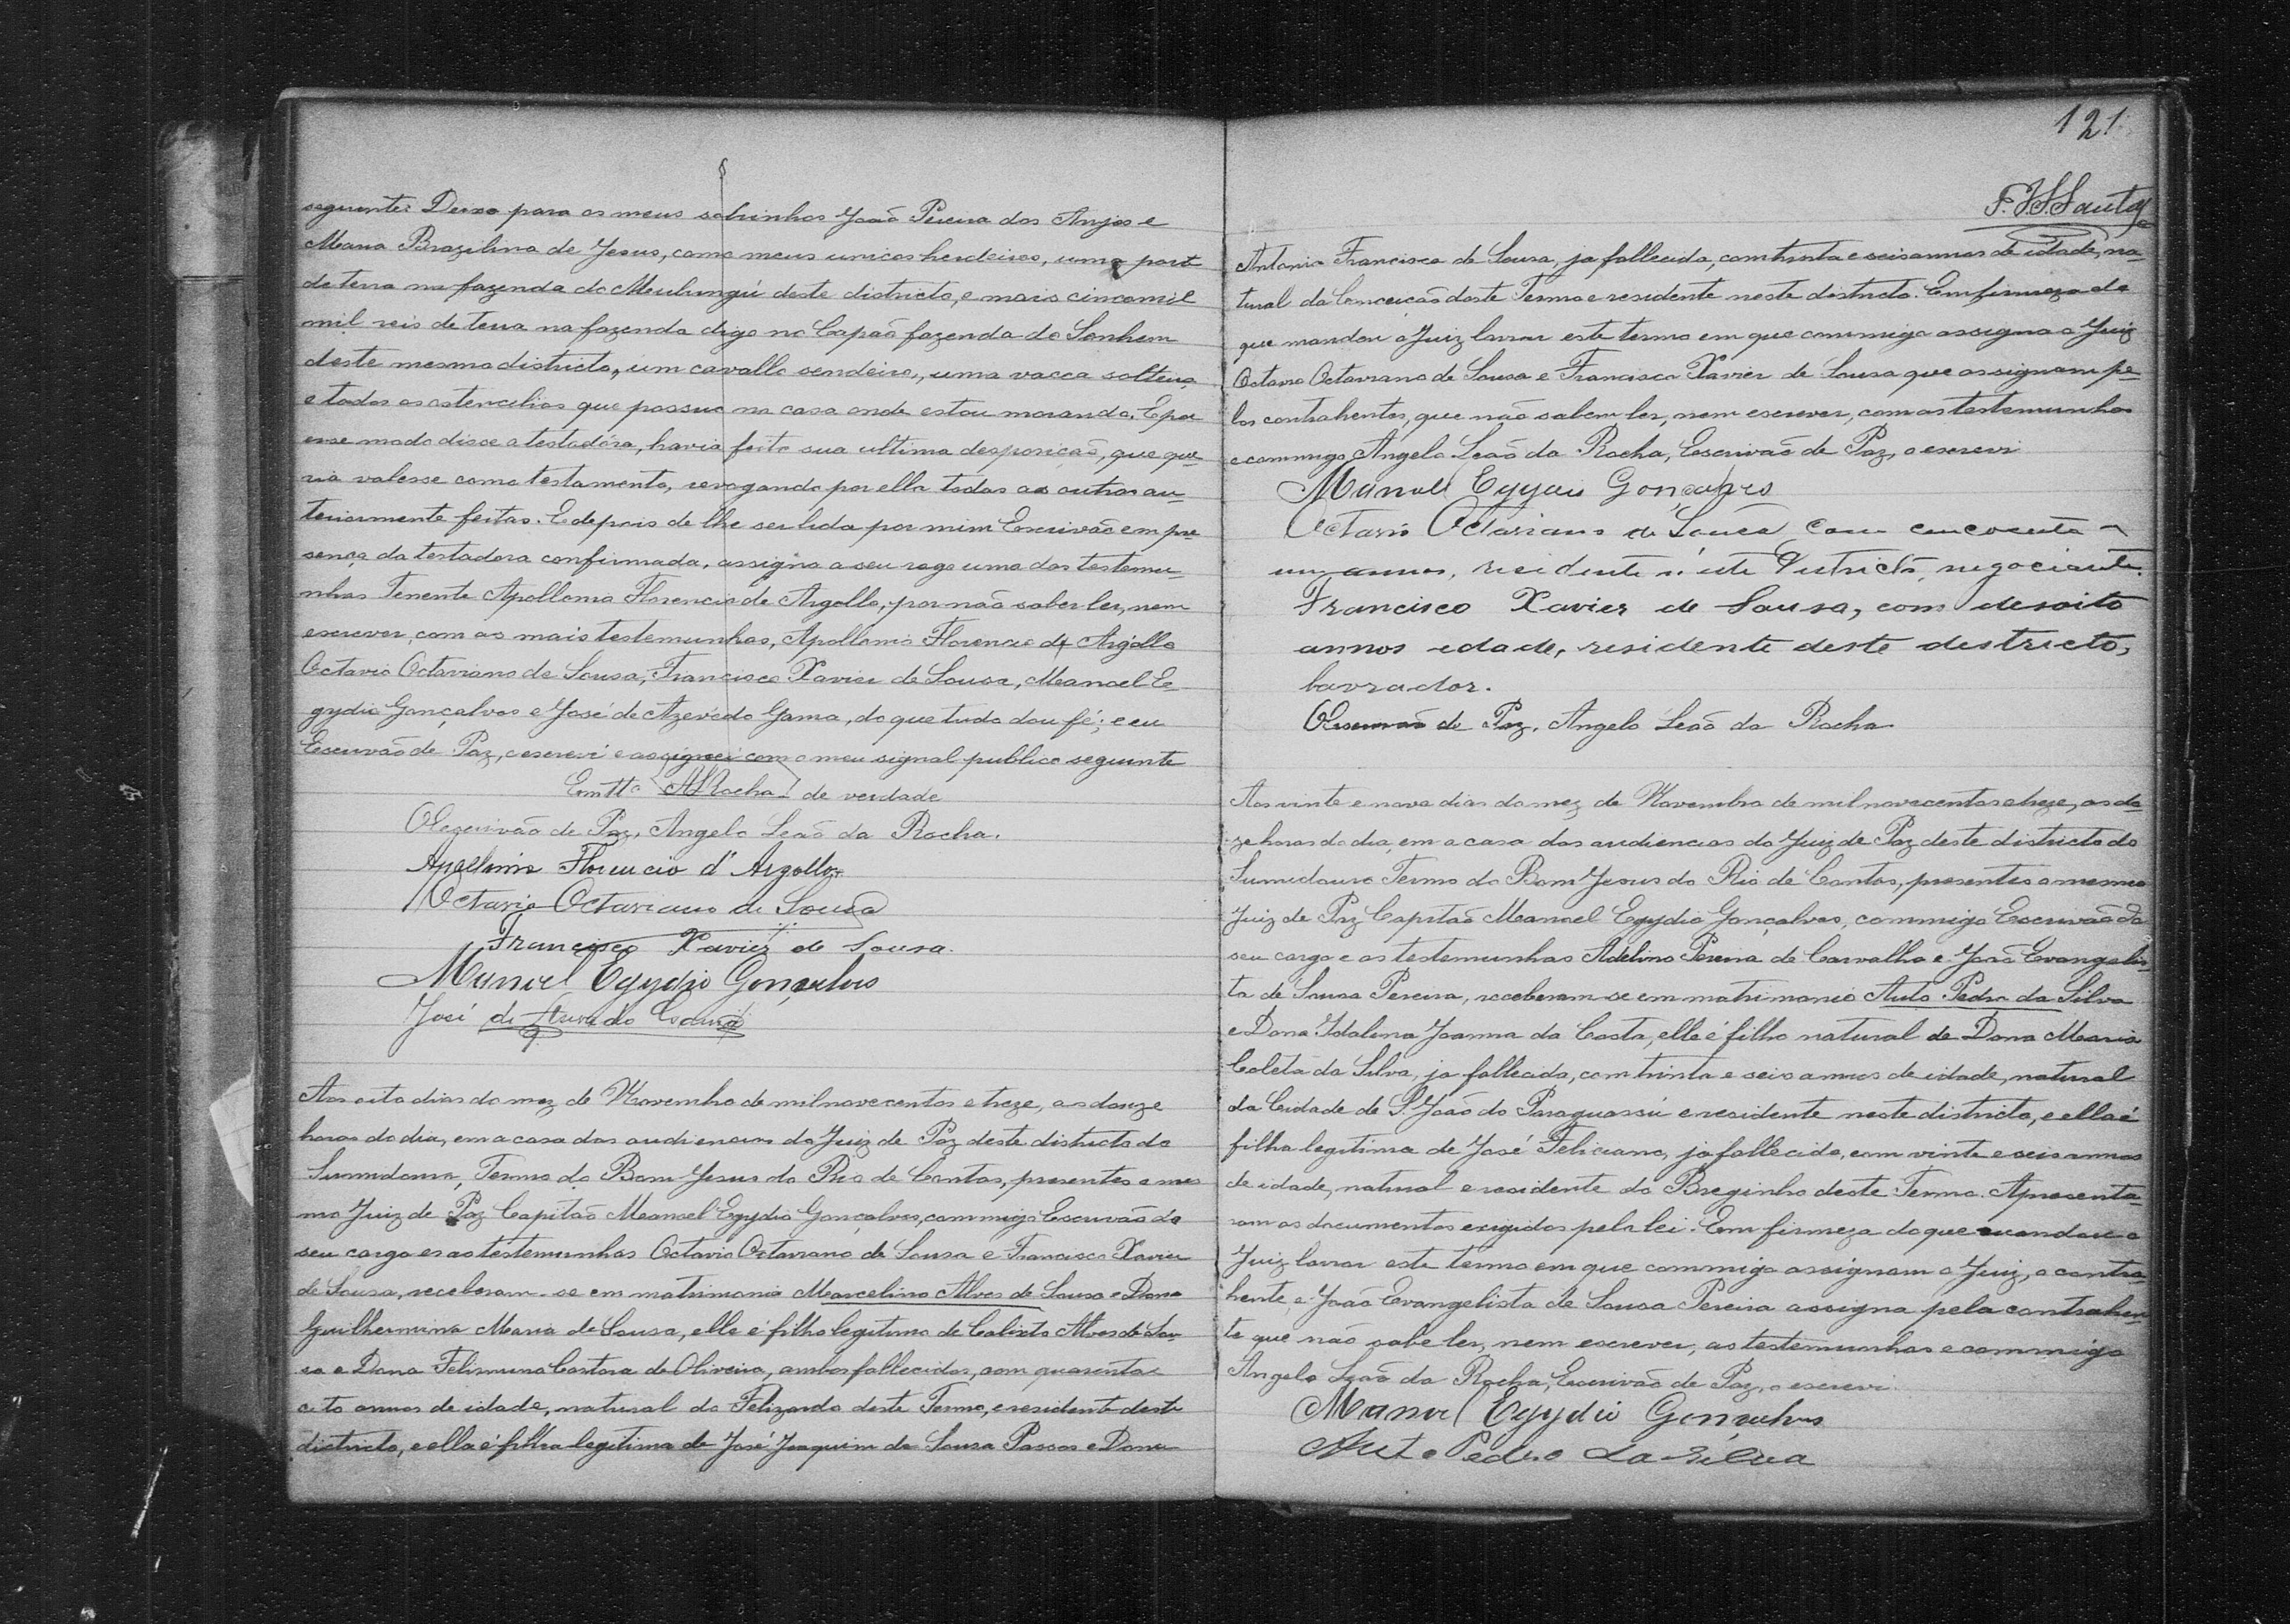 seguinte: Deixo para os meus sobrinhos João Pereira dos Anjos e
Maria Brazilina de Jesus, como meus unicos herdeiros, uma parte
de terra na fazenda do Mulungú deste districto, e mais cinco mil
mil reis de terra na fazenda digo no Capão fazenda do
deste mesmo districto, um cavallo sendeiro, uma vacca solteira
e todos os ostencilios que possuo na casa onde estou morando. E por
esse modo disse a testadôra, havia feito sua ultima desposição, que que-
ria valesse como testamento, revogando por ella todas as outras an-
teriormente feitas. E depois de lhe ser lida por mim Escrivão em pre-
sença da testadora confirmada, assigna a seu rogo uma das testemu-
nhas Tenente Apollonio Florencio de Argollo, por não saber ler, nem
escrever, com as mais testemunhas, Apollonio Florencio de Argollo
Octavio Octaviano de Sousa, Francisco Xavier de Sousa, Manoel E-
gydio Gonçalves e José de Azevêdo Gama, do que tudo dou fé; e eu
Escrivão de Paz, o escrevi e assignei com o meu signal publico seguinte
Em ttº ALRocha de verdade
O Escrivão de Paz, Angelo Leão da Rocha.
Apollonio Florencio d' Argollo
Octavio Octaviano de Souza
Francisco Xavier de Sousa.
Manoel Egydio Gonçalves
José de Asevêdo Gama
Aos oito dias do mez de Novembro de mil novecentos e treze, as douze
horas do dia, em a casa das audiencias do Juiz de Paz deste districto do
Sumidouro, Termo do Bom Jesus do Rio de Contas, presentes o mes
mo Juiz de Paz Capitão Manoel Egydio Gonçalves, commigo Escrivão do
seu cargo e as testemunhas Octavio Octaviano de Sousa e Francisco Xavier
de Sousa, receberam-se em matrimonio Marcelino Alves de Sousa e Dona
Guilhermina Maria de Sousa, elle é filho legitimo de Calixto Alves de Sou-
sa e Dona Felismina de Oliveira, ambos fallecidos, com quarenta e
oito annos de idade, natural do Felizardo deste Termo, e residente deste
districto, e ella é filha legitima de José Joaquim de Sousa Passos e Dona
121
F. J. S. Santos
Antonia Francisca de Sousa, ja fallecida, com trinta e seis annos de idade, na-
tural da Conceição deste Termo e residente neste districto. Em firmeza do
que mandou o Juiz lavrar este termo em que commigo assigna o Juiz
Octavio Octaviano de Sousa e Francisco Xavier de Sousa que assignam pe-
los contrahentes, que não sabem ler, nem escrever, com as testemunhas
e commigo Angelo Leão da Rocha, Escrivão de Paz, o escrevi
Manoel Egydio Gonçalves
Octavio Octaviano de Souza com cencoenta e
um annos, residente n'este Destricto, negociante.
Francisco Xavier de Sousa, com desoito
annos edade, residente deste destricto,
lavrador.
O Escrivão de Paz, Angelo Leão da Rocha.
Aos vinte e nove dias do mez de Novembro de mil novecentos e treze, as do
ze horas do dia, em a casa das audiencias do Juiz de Paz deste districto do
Sumidouro Termo do Bom Jesus do Rio de Contas, presentes o mesmo
Juiz de Paz Capitão Manoel Egydio Gonçalves, commigo Escrivão do
seu cargo e as testemunhas Adelino Pereira de Carvalho e João Evangelis-
ta de Sousa Pereira, receberam-se em matrimonio Auto Pedro da Silva
e Dona Idalina Joanna da Costa, elle é filho natural de Dona Maria
Coleta da Silva, ja fallecida, com trinta e seis annos de idade, natural
da Cidade de S. João do Paraguassú e residente neste districto, e ella é
filha legitima de José Feliciano, ja fallecido, com vinte e seis annos
de idade, natural e residente do Breginho deste Termo. Apresenta-
ram os documentos exigidos pela lei. Em firmeza do que mandou o
Juiz lavrar este termo em que commigo assignam o Juiz, o contra-
hente e João Evangelista de Sousa Pereira assigna pela contrahen-
te que não sabe ler, nem escrever, as testemunhas e commigo
Angelo Leão da Rocha, Escrivão de Paz, o escrevi.
Manoel Egydio Gonçalves
Auto Pedro da Silva